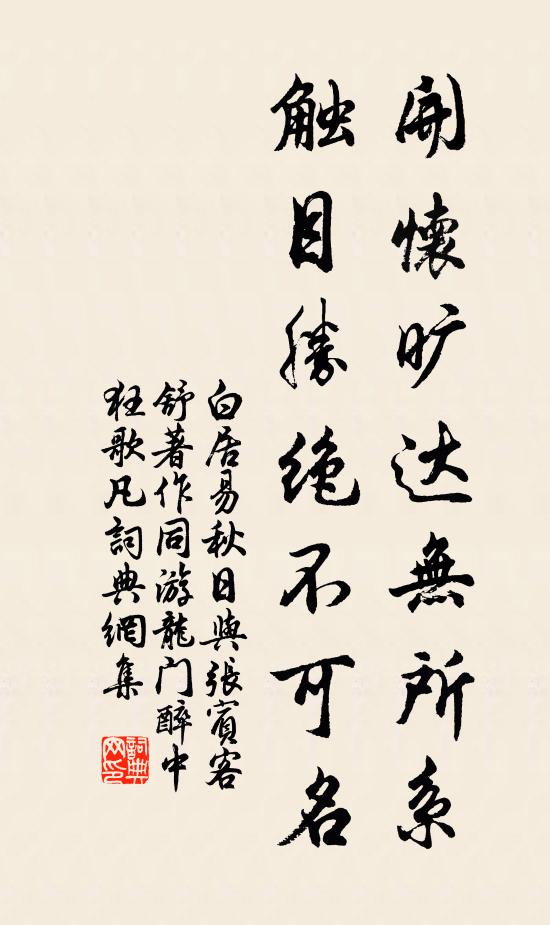 開懷旷达無所系
触目勝绝不可名
白居易秋日與張賓客
舒著作同游龍门醉中
狂歌凡詞典網集
詞典
网印